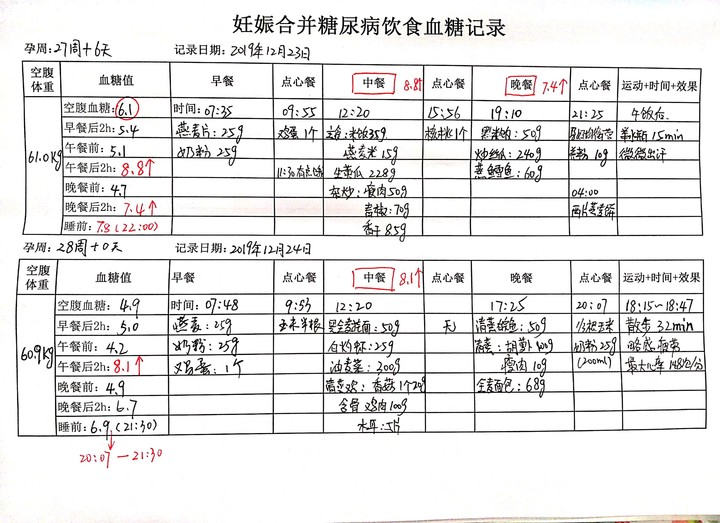 妊娠合并糖尿病饮食血糖记录
孕周:27周+6天 记录日期:2019年12月23日
空腹体重 血糖值 早餐 点心餐 中餐 8.8↑ 点心餐 晚餐 7.4↑ 点心餐 运动+时间+效果
61.0kg
空腹血糖:6.1 时间:07:35 09:55 12:20 15:56 19:10 21:25 午饭后
早餐后2h:5.4 燕麦片:25g 鸡蛋1个 35g 核桃1个 50g 15min
午餐前:5.1 奶粉25g 燕米15g 240g 10g 微微出汗
午餐后2h:8.8↑ 11:30 黄瓜228g 60g
晚餐前:4.7 瘦肉50g 04:00
晚餐后2h:7.4↑ 青椒:70g 两片
睡前:7.8(22:00) 香干85g
孕周:28周+0天 记录日期:2019年12月24日
空腹体重 血糖值 早餐 点心餐 中餐 8.1↑ 点心餐 晚餐 点心餐 运动+时间+效果
60.9kg
空腹血糖:4.9 时间:07:48 9:53 12:20 17:25 20:07 18:15~18:47
早餐后2h:5.0 燕麦:25g 玉米半根 50g 无 清蒸鲈鱼:50g 玉米 散步32min
午餐前:4.2 奶粉:25g 白灼虾:25g 胡萝卜100g 奶粉25g 略感
午餐后2h:8.1↑ 鸡蛋:1个 油麦菜:200g 瘦肉10g (200ml) 最大心率148次/分
晚餐前:4.9 香菇1个20g 全麦面包:68g
晚餐后2h:6.7 含骨鸡肉100g
睡前:6.9(21:30) 木耳:5片
20:07—21:30